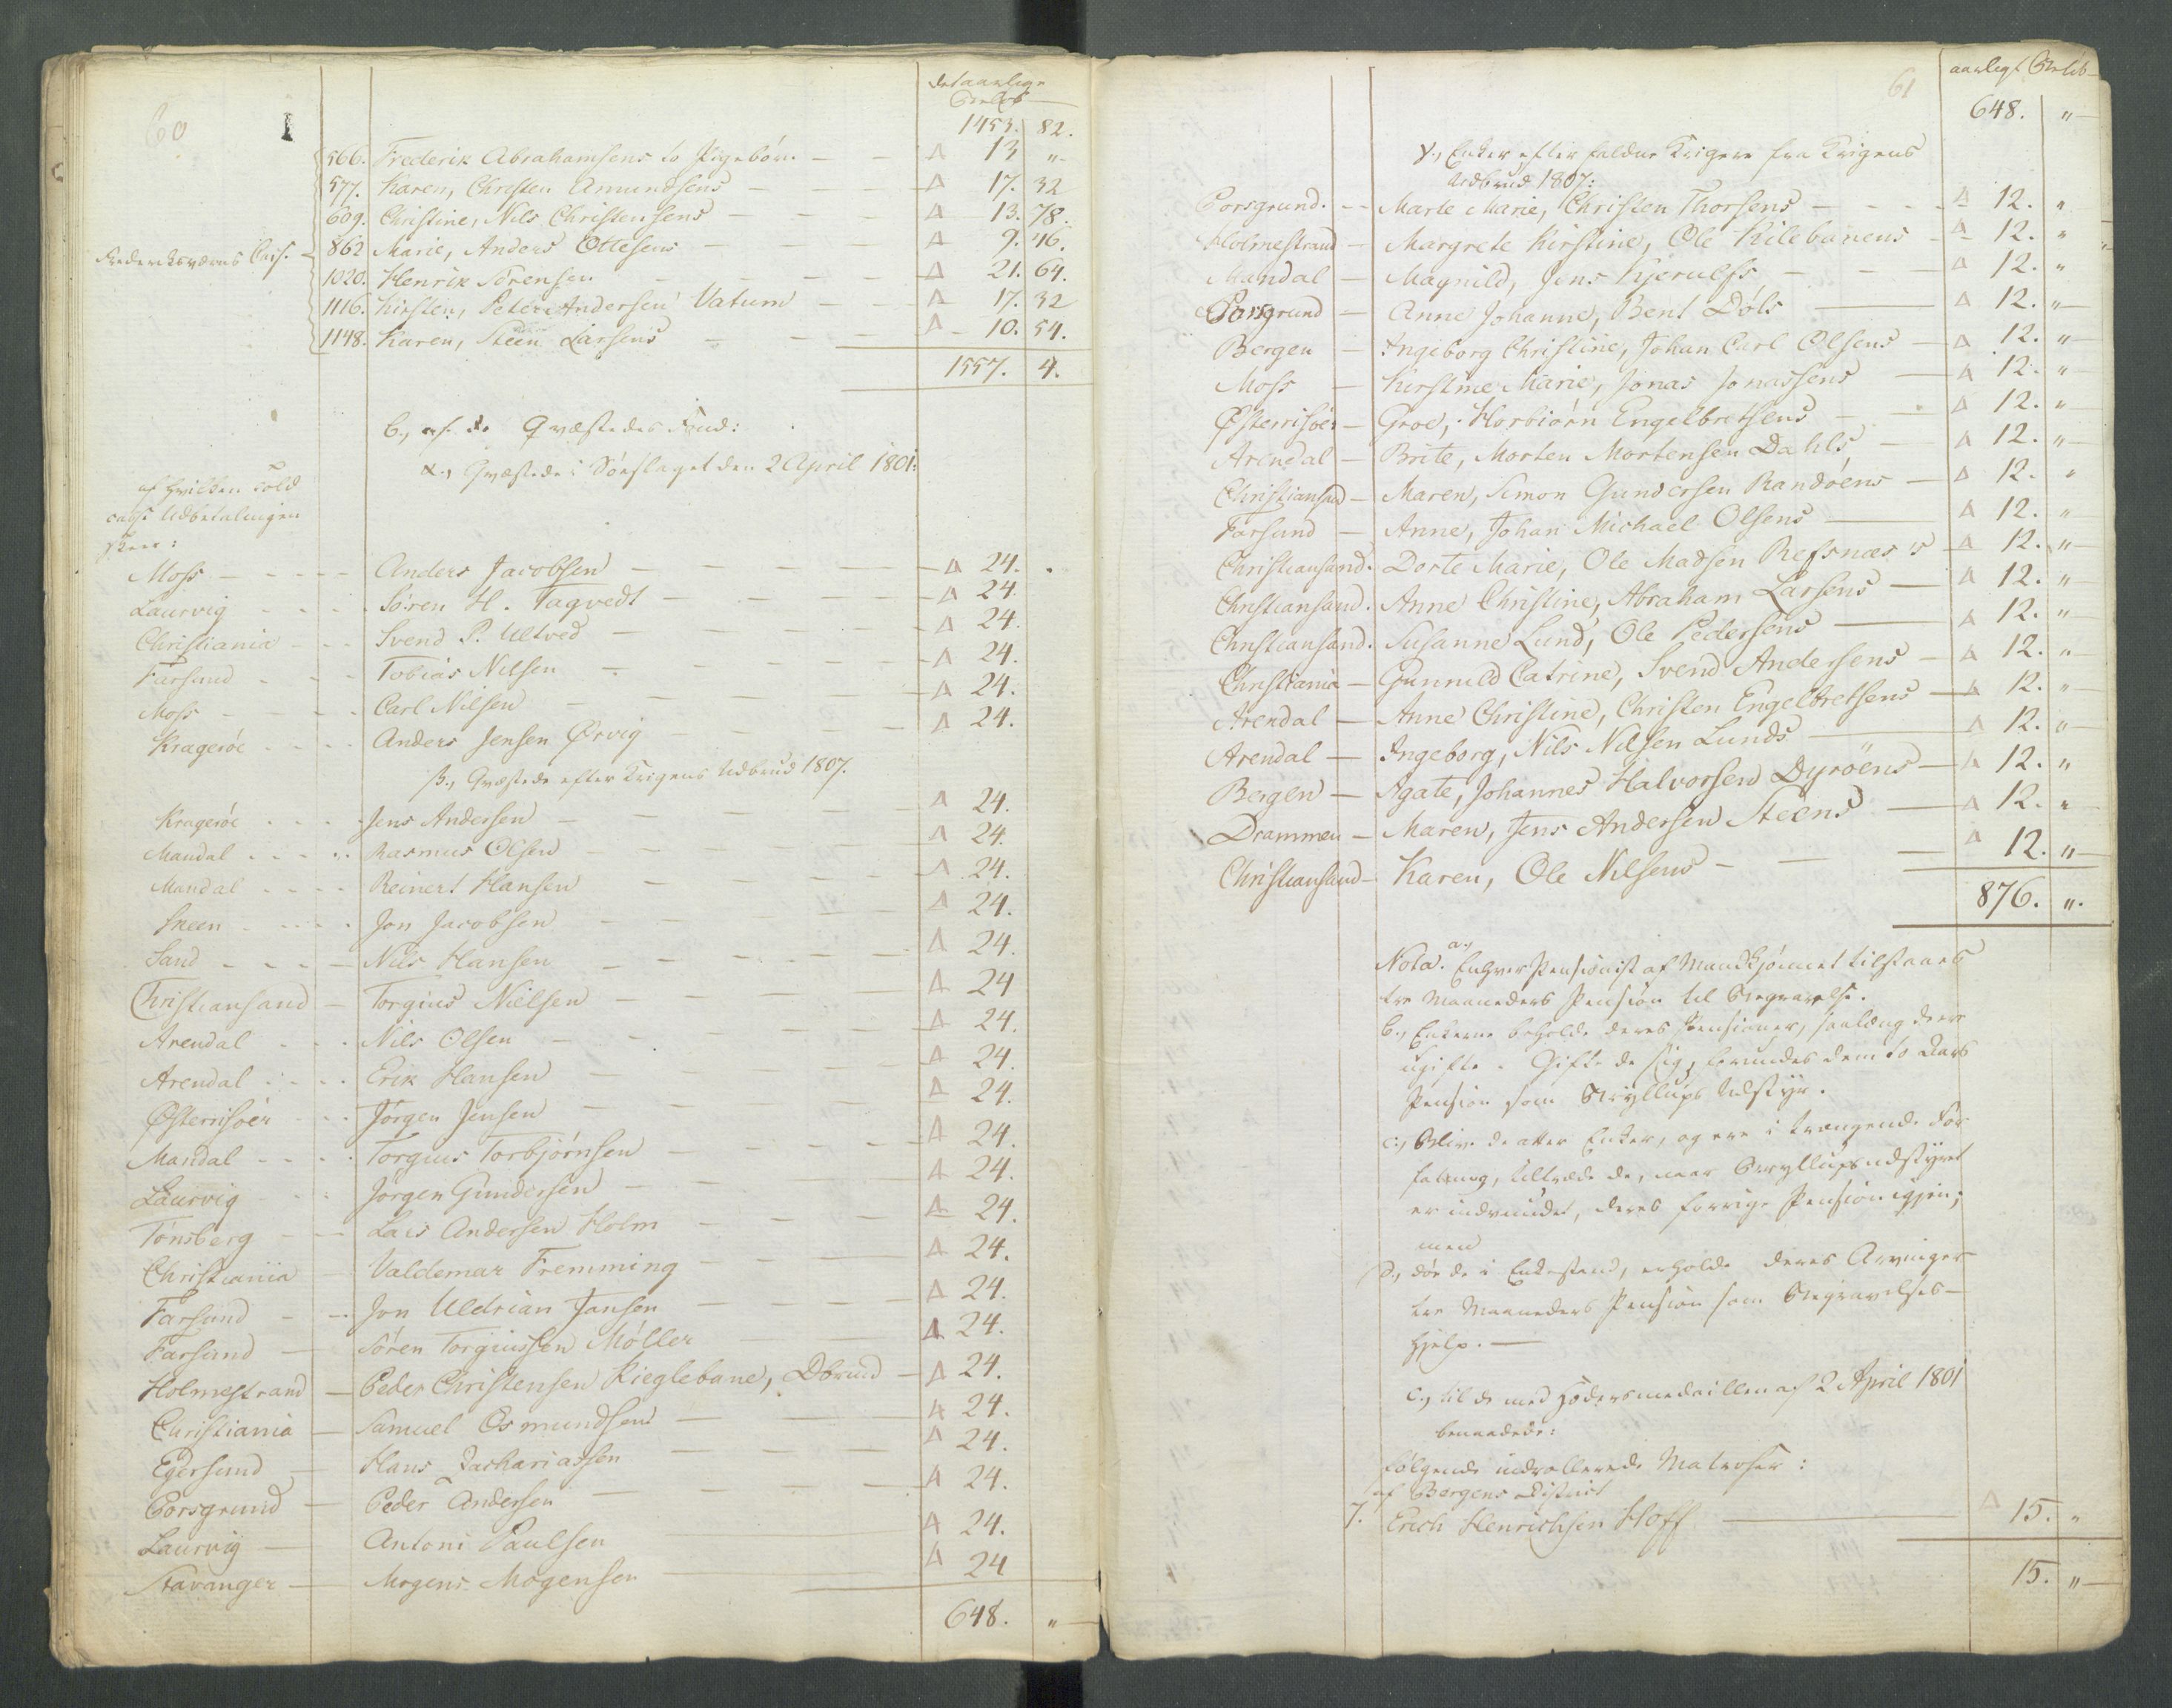 60
det aarlige
Beløb
1453. 82.
566. Frederik Abrahamsens to Pigebørn — — 13 "
577. Karen, Christen Amundsens — — 17. 32
609. Christine, Nils Christensens — — 13. 78.
Frederiksværns Chis. 862 Marie, Anders Ottesens — — 9. 46.
1020. Henrik Sörensen — — 21. 64.
1116. Kirsten, Peter Andersen Vatum — — 17. 32
1148. Karen, Steen Larsens — — 10. 54.
1557. 4.
b., af de Qvæstedes Fond:
α., Qvæstede i Søeslaget den 2 April 1801:
af hvilken Told
casse Udbetalingen
skeer:
Moss — Anders Jacobsen — 24.
Laurvig — Søren H. Tagvedt — 24.
Christiania — Svend P. Ultved — 24.
Farsund — Tobias Nilsen — 24.
Moss — Carl Nilsen — 24.
Kragerøe — Anders Jensen Ørvig — 24.
β., Qvæstede efter Krigens Udbrud 1807.
Kragerøe — Jens Andersen — 24.
Mandal — Rasmus Olsen — 24.
Mandal — Reinert Hansen — 24.
Skeen — Jon Jacobsen — 24.
Sand — Nils Hansen — 24.
Christiansand — Torgius Nielsen — 24
Arendal — Nils Olsen — 24.
Arendal — Erik Hansen — 24.
Østerrisöer — Jörgen Jensen — 24.
Mandal — Torgius Torbjørnsen — 24.
Laurvig — Jörgen Gundersen — 24.
Tønsberg — Lars Andersen Holm — 24.
Christiania — Valdemar Fremming — 24.
Farsund — Jon Uldrian Jansen — 24.
Farsund — Sören Torgiussen Møller — 24.
Holmestrand — Peder Christensen Kieglebane, — 24.
Christiania — Samuel Osmundsen — 24.
Egersund — Hans Zachariassen — 24.
Porsgrund — Peder Andersen — 24.
Laurvig — Antoni Paulsen — 24.
Stavanger — Mogens Mogensen — 24
648. "
61
aarligt Beløb
648. "
γ., Enker efter faldne Krigere fra Krigens
Udbrud 1807:
Porsgrund. — Marte Marie, Christen Thorsens — 12. "
Holmestrand — Margrete Kirstine, Ole Kilebanens — 12. "
Mandal — Magnild, Jens Kjerulfs — 12. "
Porsgrund — Anne Johanne, Bent Döls — 12. "
Bergen — Ingeborg Christine, Johan Carl Olsens — 12. "
Moss — Kirstine Marie, Jonas Jonassens — 12. "
Østerrisöer — Groe, Horbiörn Engelbretsens — 12. "
Arendal — Brite, Morten Mortensen Dahls, — 12. "
Christiansand — Maren, Simon Gundersen Randöens — 12. "
Farsund — Anne, Johan Michael Olsens — 12. "
Christiansand. Dorte Marie, Ole Madsen Refsnæs's — 12. "
Christiansand. Anne Christine, Abraham Larsens — 12. "
Christiansand. Susanne Lund, Ole Pedersens — 12. "
Christiania — Gunnild Catrine, Svend Andersens — 12. "
Arendal — Anne Christine, Christen Engelbretsens — 12. "
Arendal — Ingeborg, Nils Nilsen Lunds — 12. "
Bergen — Agate, Johannes Halvorsen Dyröens — 12. "
Drammen — Maren, Jens Andersen Steens — 12. "
Christiansand — Karen, Ole Nilsens — 12. "
876. "
Nota. a., Enhver Pensionist af Mandkjønnet tilstaaes
tre Maaneders Pension til Begravelse.
b., Enkerne beholde deres Pensioner, saalæng de ere
ugifte. Gifte de sig, forundes dem to Aars
Pension som Bryllups Udstyr.
c., Blive de atter Enker, og ere i trængende For
fatning, tiltræde de, naar Bryllupsudstyret
er indvundet, deres forrige Pension igjen;
men
d., døe de i Enkestand, erholde deres Arvinger
tre Maaneders Pension som Begravelses-
hjelp. —
c., til de med Hædersmedaillen af 2 April 1801
benaadede:
følgende indrollerede Matroser:
af Bergens District
7. Erich Henrichsen Hoff — 15. "
15. "